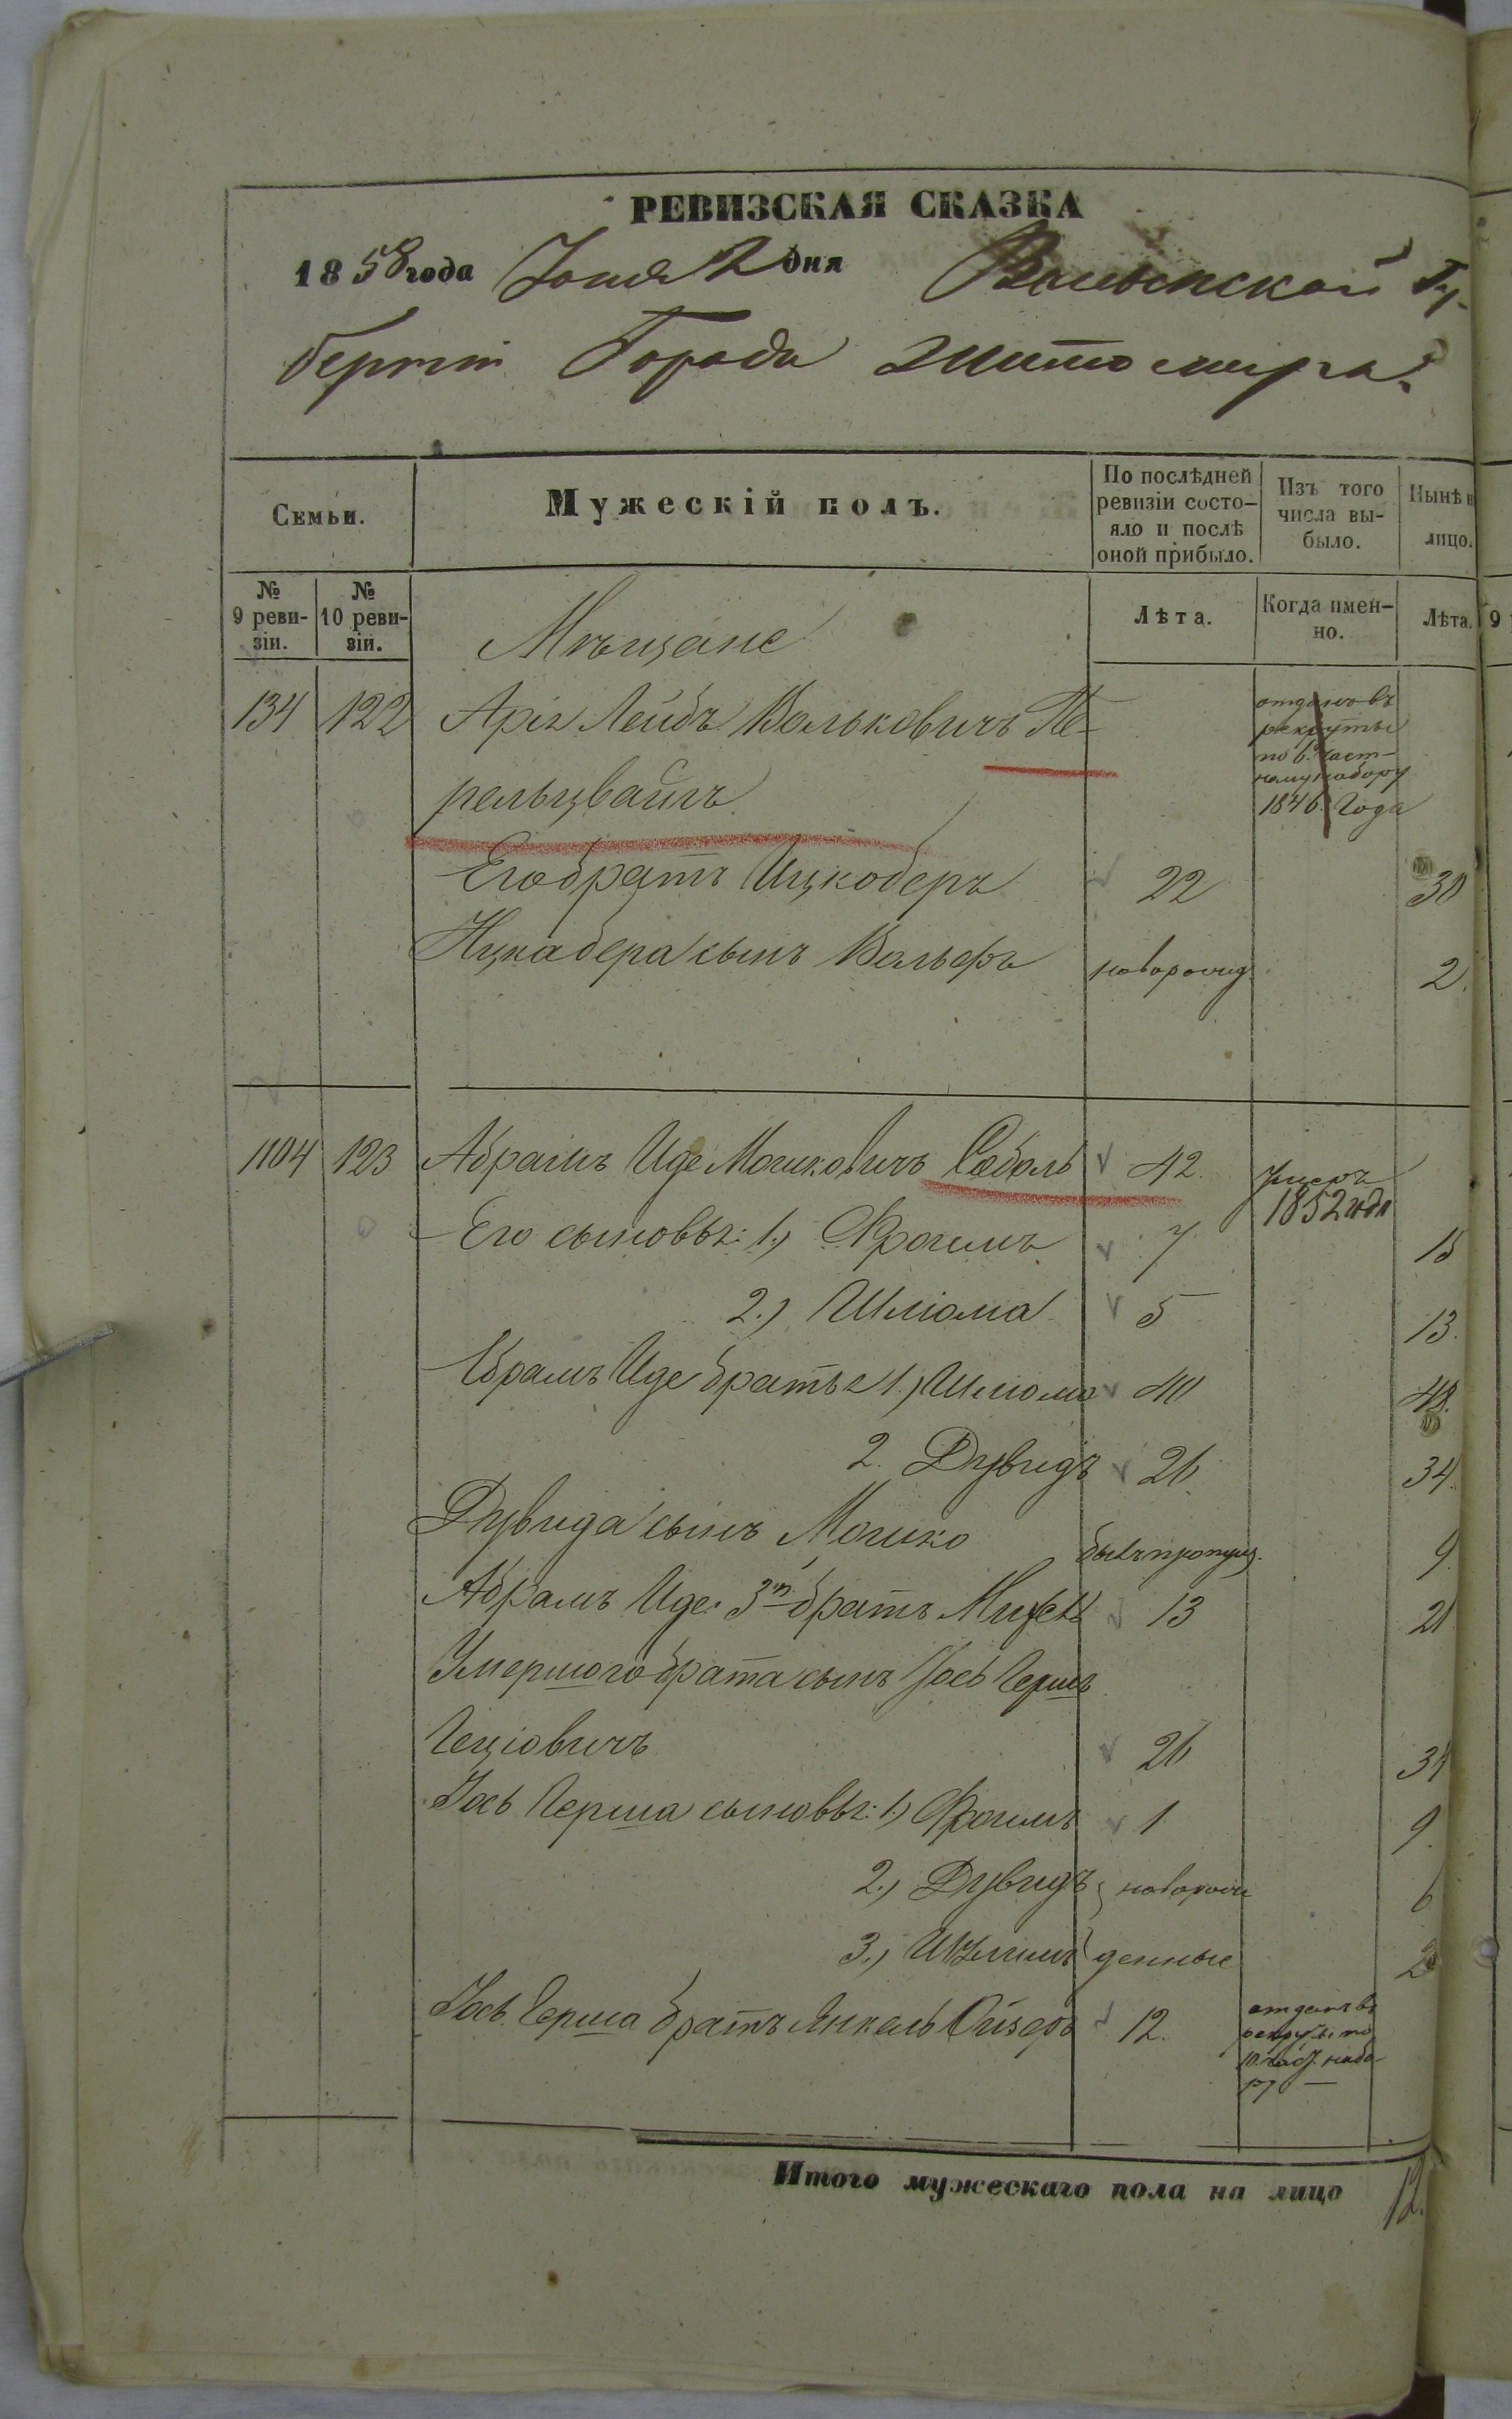 РЕВИЗСКАЯ СКАЗКА
1858 года Іюня 2 дня Волынской Гу-
берніи Города Житомира.
Семьи.
Мужескій полъ.
По послѣдней ревизіи состо-яло и послѣ оной прибыло.
Изъ того числа вы-было.
Нынѣ н лицо.
№ 9 реви-зіи.
№ 10 реви-зіи.
Лѣта.
Когда имен-но.
Лѣта.
9
Мѣщане
134 122 Арія Лейбъ Вольковичъ Пе-
рельцвайгъ
отданъ въ
рекруты
по 6. част-
ному набору
1846 Года
Его братъ Ицкоберъ 22 30
Ицкабера сынъ Вольфъ новорожд. 2.
1104 123 Абрамъ Иде Мошковичъ Соболь 42. умеръ
1852 года
Его сыновья: 1.) Фроимъ 7 15
2.) Шлiома 5 13.
Абрамъ Иде братья 1.) Шлiома 40 48.
2. Дувидъ 26. 34.
Дувида сынъ Мошко былъ пропущ. 9.
Абрамъ Иде 3й братъ 13 21
Умершого брата сынъ Іось Гершъ
Гецiовичъ 26 34
Іось Герша сыновья: 1.) Фроимъ 1 9.
2.) Дувидъ новорож 6
3.) денные 2
Іось Герша братъ Янкель Ойзеръ 12. отданъ въ
рекруты по
10. част. набо-
ру —
Итого мужескаго пола на лицо 12.